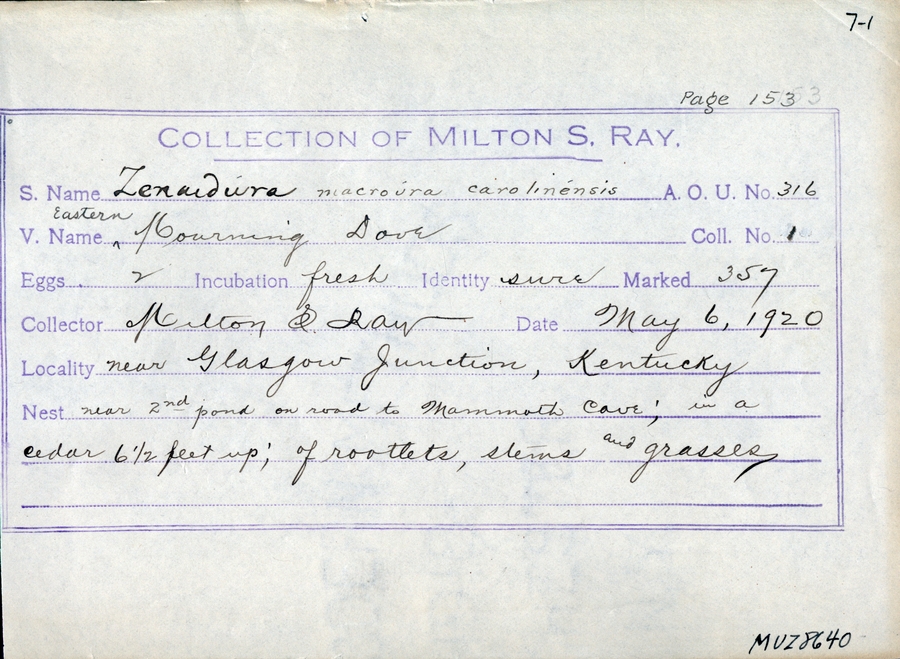 7-1
Page 153
COLLECTION OF MILTON S. RAY.
S. Name Zenaidura macroura carolinensis A. O. U. No. 316
Eastern
V. Name ‸ Mourning Dove Coll. No. 1
Eggs 2 Incubation fresh Identity sure Marked 357
Collector Milton S Ray Date May 6, 1920
Locality near Glasgow Junction, Kentucky
Nest near 2nd pond on road to Mammoth Cave; in a
cedar 6½ feet up; of rootlets, stems and grasses
MVZ8640